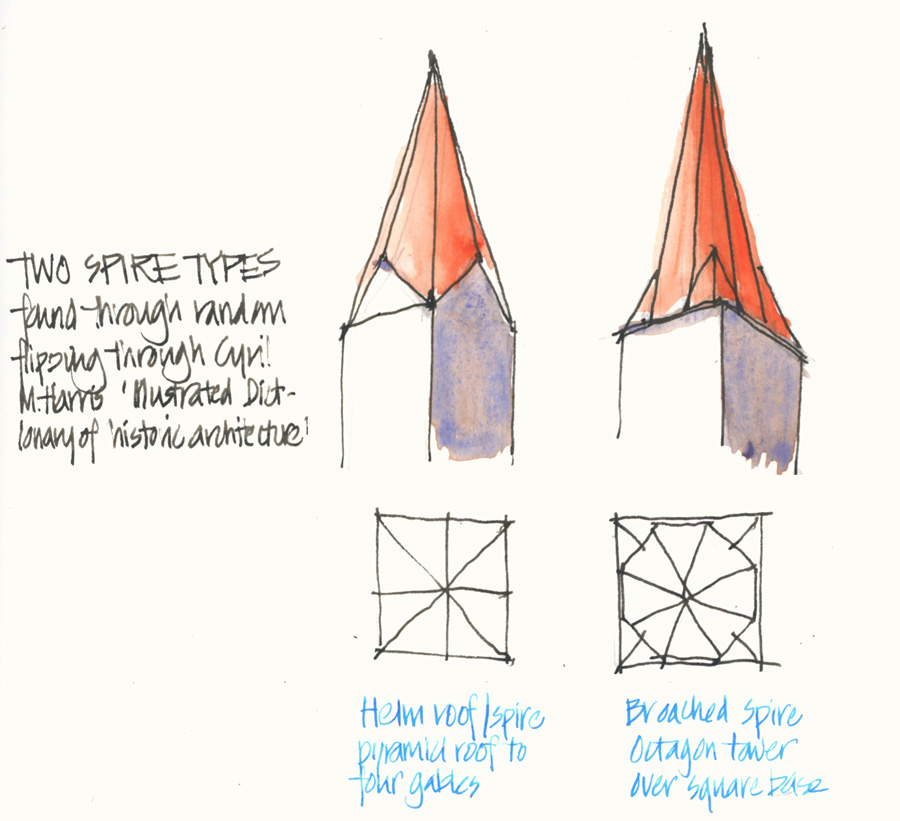 TWO SPIRE TYPES
found through random
flipping through Cyril
M. Harris 'Illustrated Dict-
ionary of historic architecture'
Helm roof/spire
pyramid roof to
four gables
Broached spire
Octagon tower
over square base